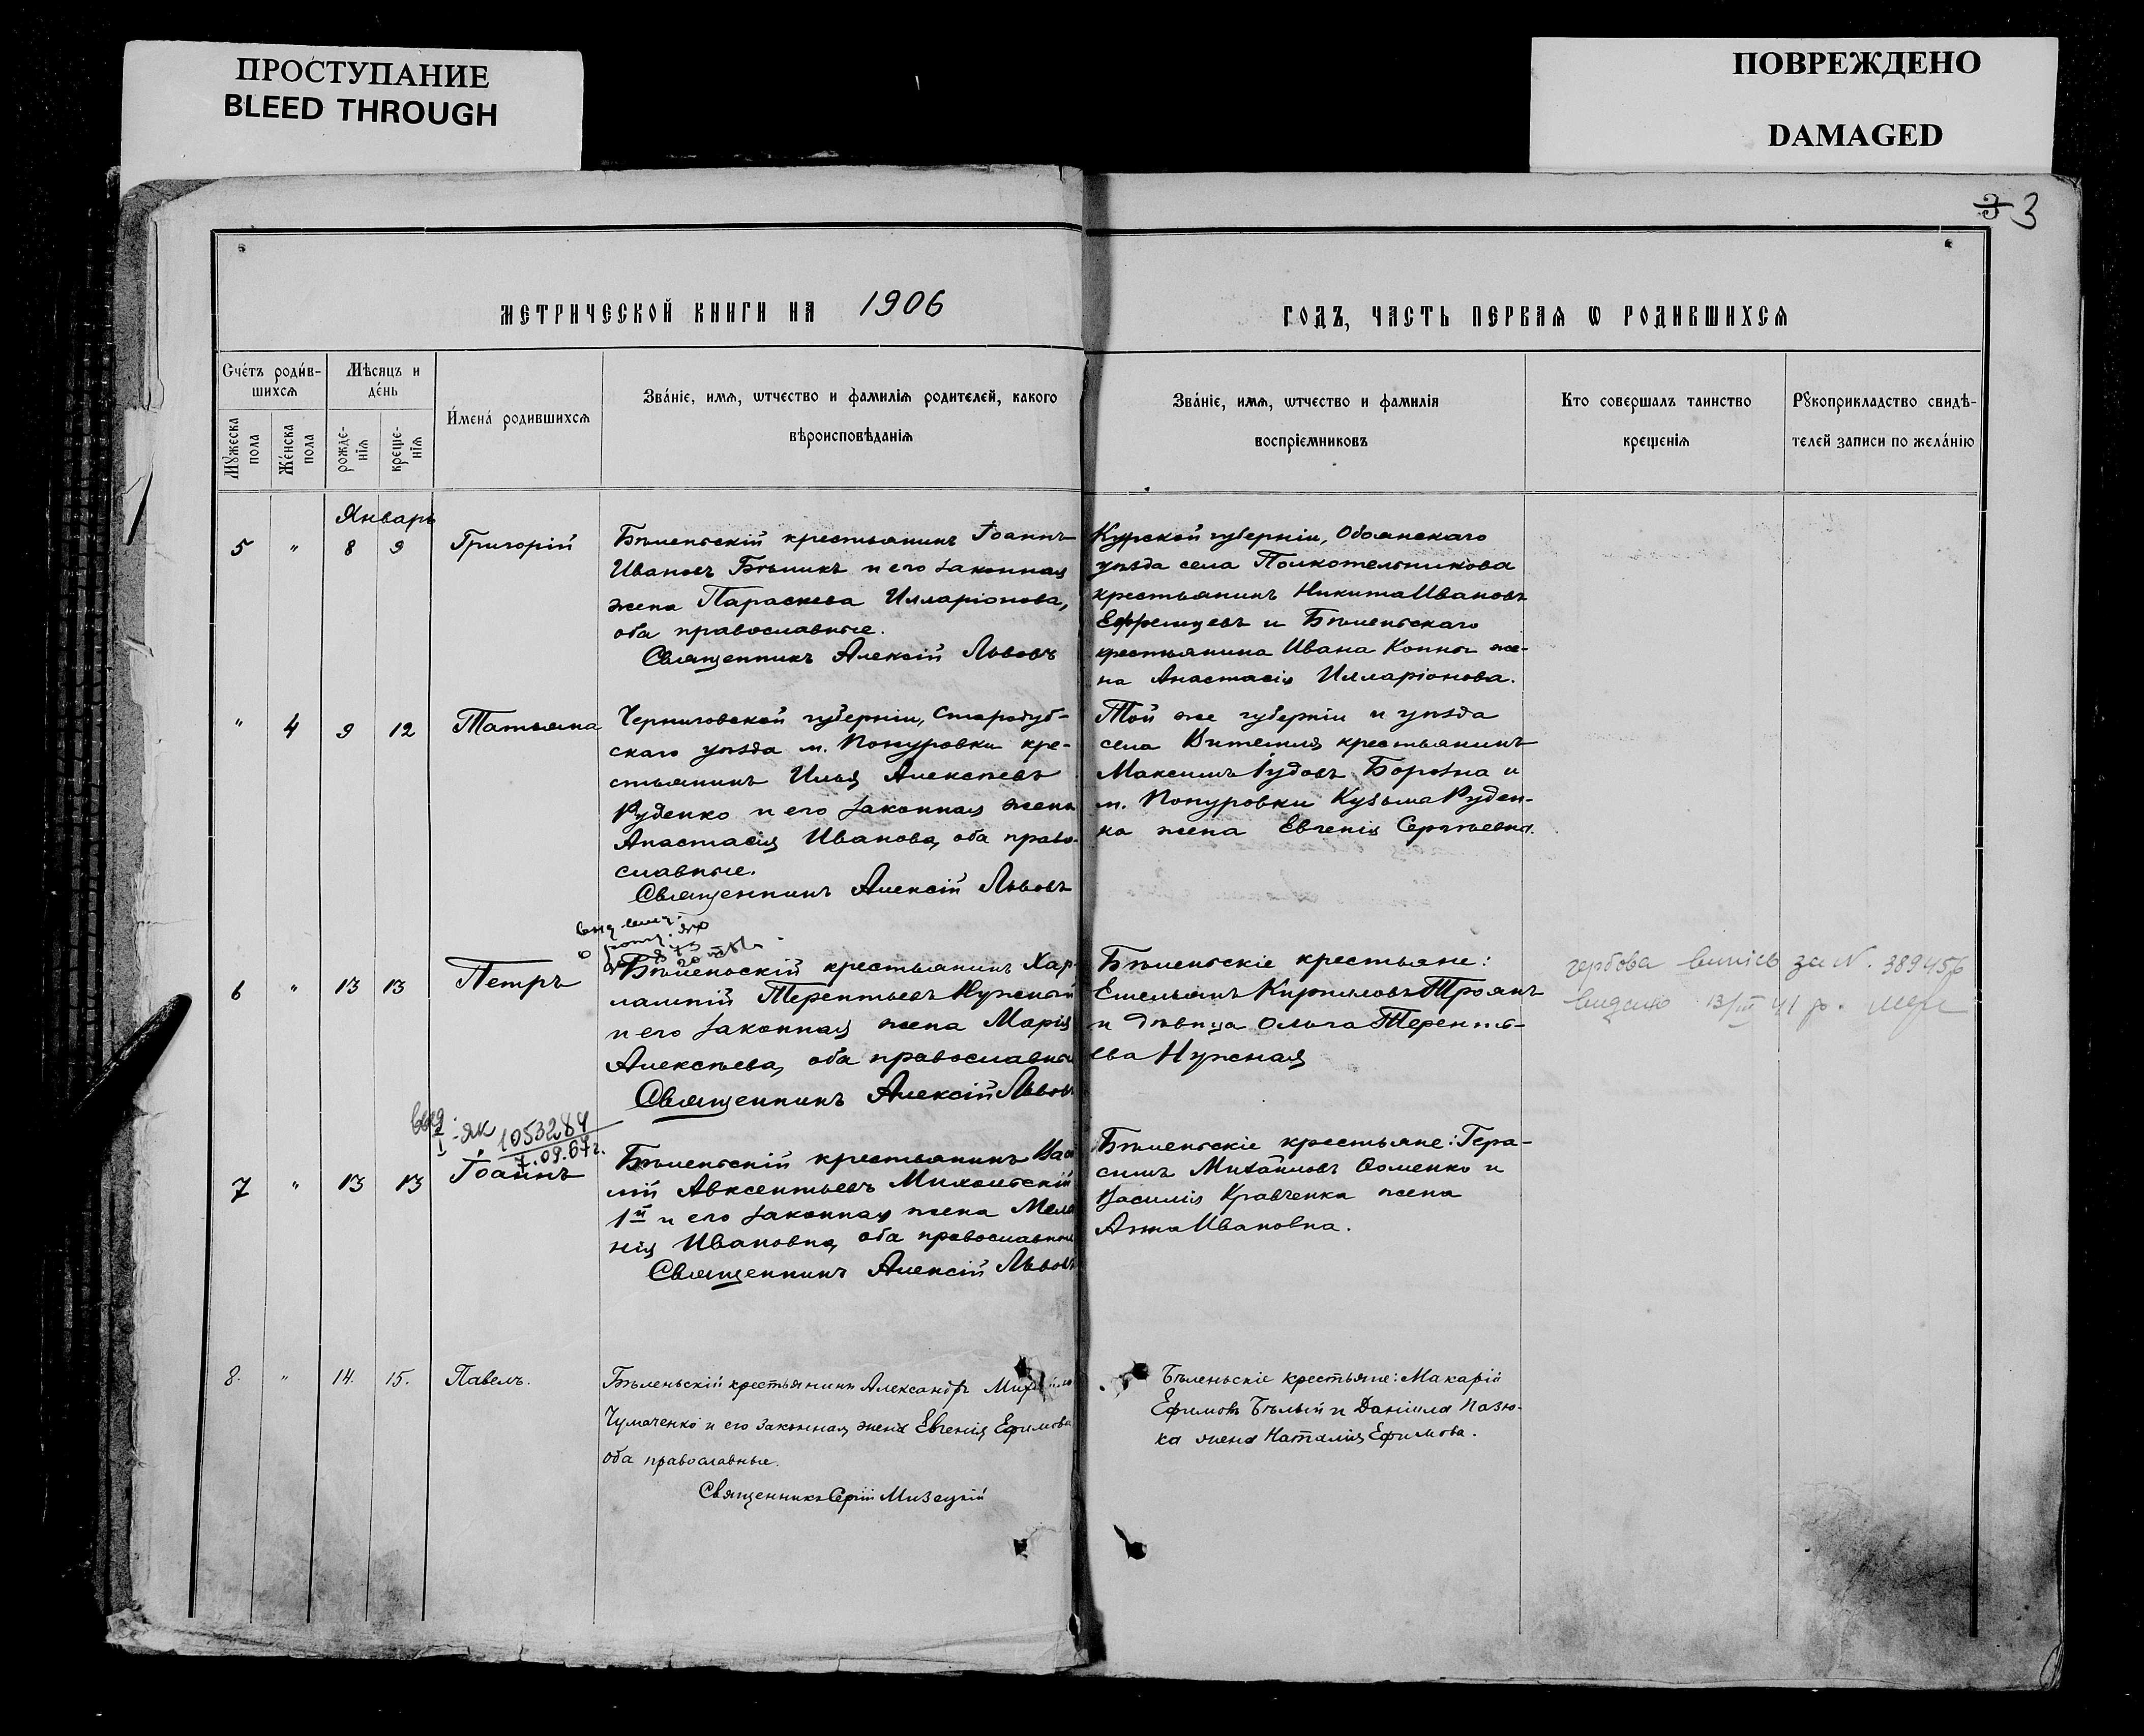 ПРОСТУПАНИЕ
BLEED THROUGH
ПОВРЕЖДЕНО
DAMAGED
3 3
МЕТРИЧЕСКОЙ КНИГИ НА 1906
ГОДЪ, ЧАСТЬ ПЕРВАѦ Ѡ РОДИВШИХСѦ
Сче́тъ роди́в-
шихсѧ
Мꙋ́жеска
пола
Же́нска
пола
Мѣсяцъ и
де́нь
рожде-
нїѧ
креще-
нїѧ
И́мена́ родившихсѧ
Зва́нїе, имѧ, ѡтчество и фамилїѧ родителей, какого
вѣроисповѣданїѧ
Зва́нїе, имѧ, ѡтчество и фамилїѧ
воспрїемниковъ
Кто совершалъ таинство
крещенїѧ
Рꙋкоприкладство свидѣ-
телей записи по жела́нїю
Январь
5 " 8 9 Григорій
Бѣленьскій крестьянинъ Іоаннъ
Ивановъ Бѣликъ и его законная
жена Параскева Илларіонова,
оба православные.
Священникъ Алексій Львовъ
Курской губерніи, Обоянскаго
уѣзда села Полкотельникова
крестьянинъ Никита Ивановъ
Ефремцевъ и Бѣленьскаго
крестьянина Ивана Коппы же-
на Анастасія Илларіонова.
" 4 9 12 Татьяна
Черниговской губерніи, Стародуб-
скаго уѣзда м. Понуровки кре-
стьянинъ Илья Алексѣевъ
Руденко и его законная жена
Анастасія Иванова, оба право-
славные.
Священникъ Алексій Львовъ
Той же губерніи и уѣзда
села Витемля крестьянинъ
Максимъ Іудовъ Борозна и
м. Понуровки Кузьма Руден-
ко жена Евгенія Сергѣевна.
6 " 13 13 Петръ
Бѣленьскій крестьянинъ Хар-
лампій Терентьевъ Нужный
и его законная жена Марія
Алексѣева, оба православные
Священникъ Алексій Львовъ
Бѣленьскіе крестьяне:
Емельянъ Кирилловъ Троянъ
и дѣвица Ольга Терентъ-
ева Нужная
за N. 389456
13/III 41 р.
1053284
7.09.67г.
7 " 13 13 Іоаннъ
Бѣленьскій крестьянинъ Васи
лій Авксентьевъ Михальскій
1й и его законная жена Мела
нія Ивановна, оба православные
Священникъ Алексій Львовъ
Бѣленьскіе крестьяне: Гера-
симъ Михайловъ Ѳоменко и
Василія Кравченка жена
Анна Ивановна.
8. " 14. 15. Павелъ.
Бѣленьскій крестьянинъ Александръ
Чумаченко и его законная жена Евгенія Ефимова
оба православные.
Священникъ Сергій Мизецкій
Бѣленьскіе крестьяне: Макарій
Ефимовъ Бѣлый и Даніила Пазю-
ка жена Наталія Ефимова.